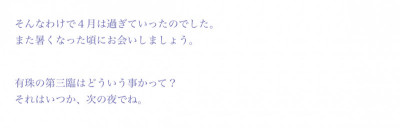 そんなわけで４月は過ぎていったのでした。
また暑くなった頃にお会いしましょう。
有珠の第三臨はどういう事かって？
それはいつか、次の夜でね。